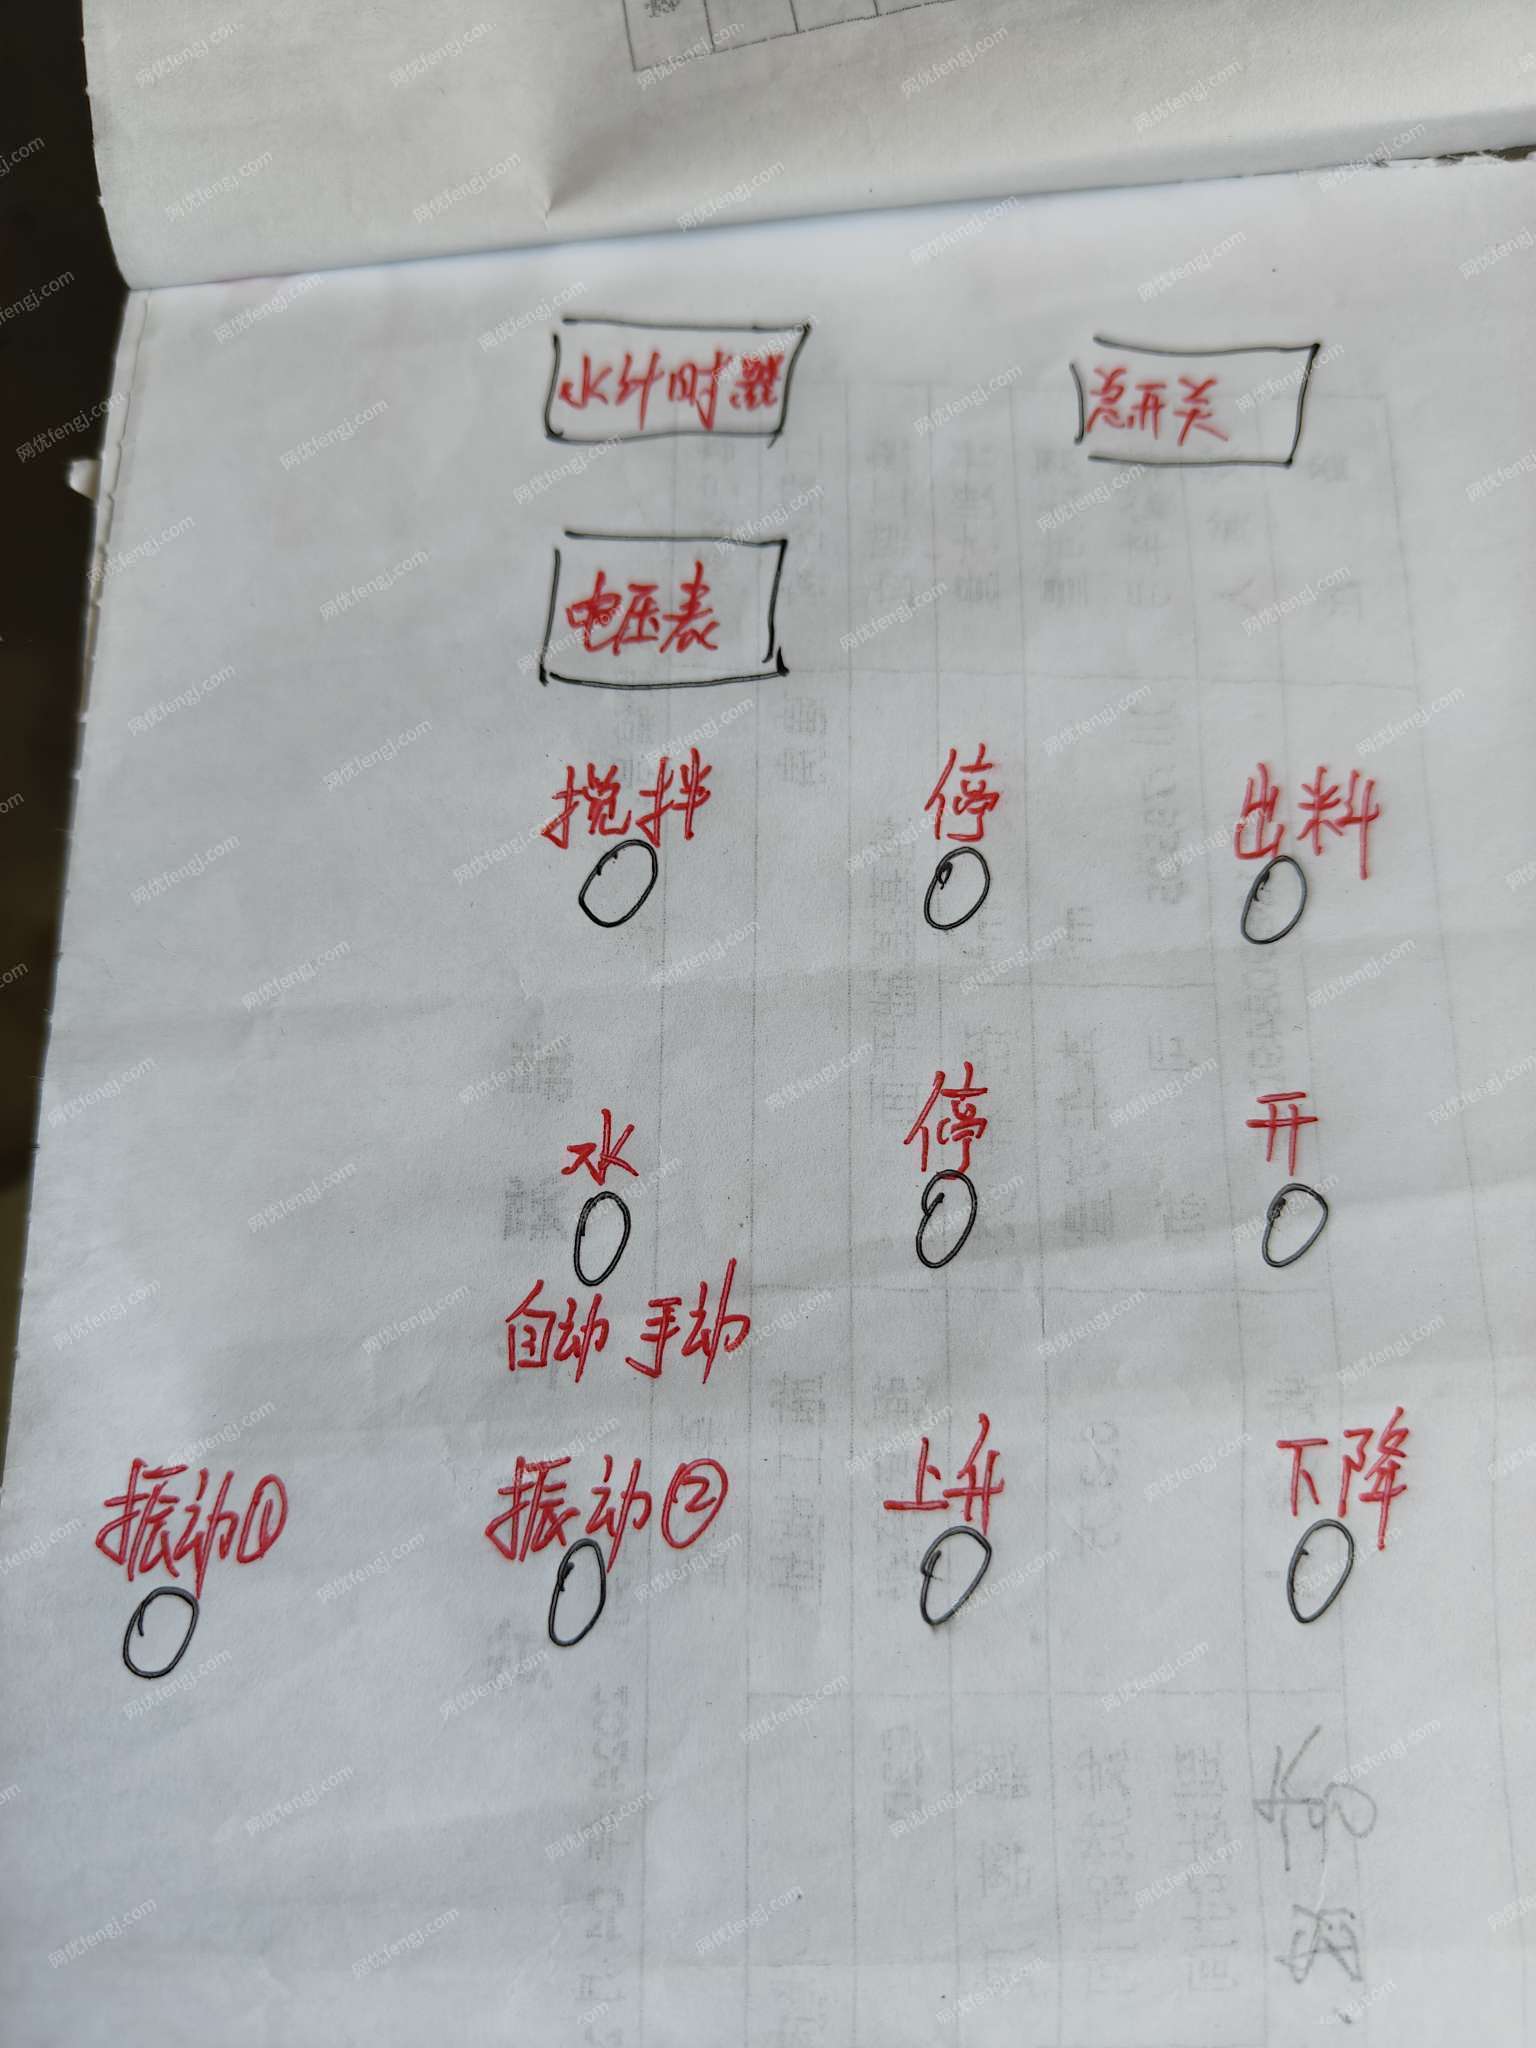 水计时器 总开关
电压表
搅拌 停 出料
水 停 开
自动 手动
振动① 振动② 上升 下降
网优fengj.com